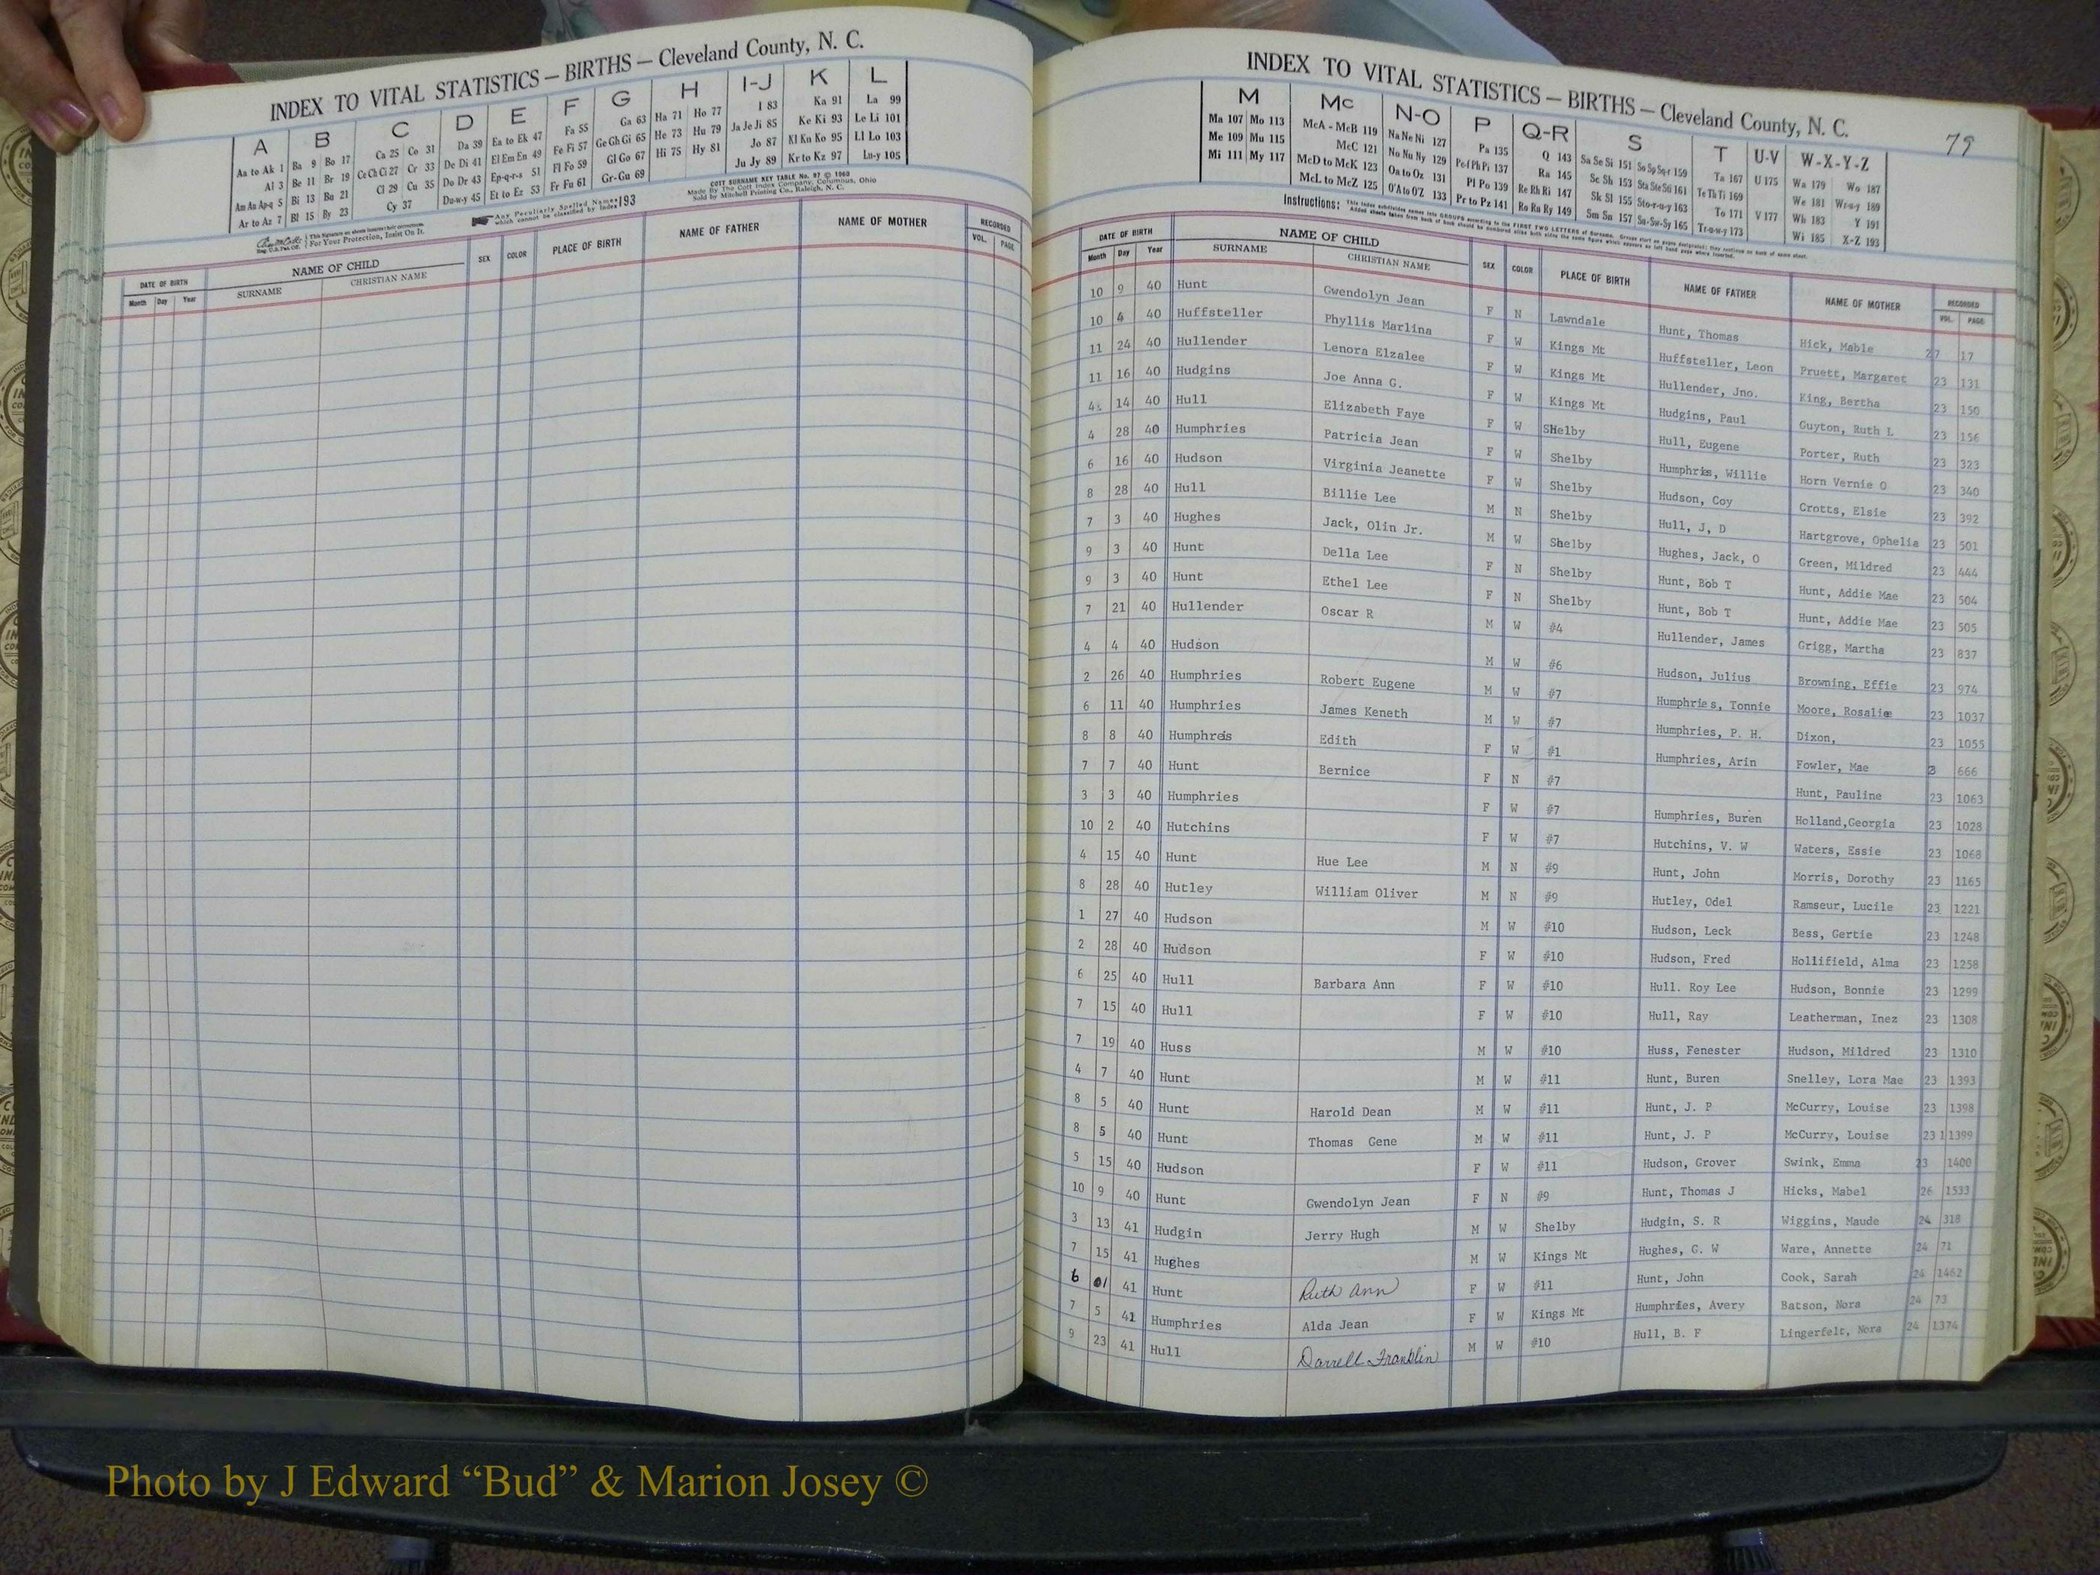 INDEX TO VITAL STATISTICS — BIRTHS — Cleveland County, N. C.
A B C D E F G H I-J K L
Aa to Ak 1 Ba 9 Bo 17 Ca 25 Co 31 Da 39 Ea to Ek 47 Fa 55 Ga 63 Ha 71 Ho 77 I 83 Ka 91 La 99
Al 3 Be 11 Br 19 Ce Ch Ci 27 Cr 33 De Di 41 El Em En 49 Fe Fi 57 Ge Gh Gi 65 He 73 Hu 79 Ja Je Ji 85 Ke Ki 93 Le Li 101
Am An Ap-q 5 Bi 13 Bu 21 Cl 29 Cu 35 Do Dr 43 Ep-q-r-s 51 Fl Fo 59 Gl Go 67 Hi 75 Hy 81 Jo 87 Kl Kn Ko 95 Ll Lo 103
Ar to Az 7 Bl 15 By 23 Cy 37 Du-w-y 45 Et to Ez 53 Fr Fu 61 Gr-Gu 69 Ju Jy 89 Kr to Kz 97 Lu-y 105
COTT SURNAME KEY TABLE No. 97 © 1960
Made By The Cott Index Company, Columbus, Ohio
Sold by Mitchell Printing Co., Raleigh, N. C.
Any Peculiarly Spelled Names which cannot be classified by Index 193
This Signature on sheets insures their correctness.
For Your Protection, Insist On It.
DATE OF BIRTH NAME OF CHILD SEX COLOR PLACE OF BIRTH NAME OF FATHER NAME OF MOTHER RECORDED
Month Day Year SURNAME CHRISTIAN NAME VOL. PAGE
INDEX TO VITAL STATISTICS — BIRTHS — Cleveland County, N. C.
79
M Mc N-O P Q-R S T U-V W-X-Y-Z
Ma 107 Mo 113 McA - McB 119 Na Ne Ni 127 Pa 135 Q 143 Sa Se Si 151 So Sp Sq-r 159 Ta 167 U 175 Wa 179 Wo 187
Me 109 Mu 115 McC 121 No Nu Ny 129 Pe-f Ph Pi 137 Ra 145 Sc Sh 153 Sta Ste Sti 161 Te Th Ti 169 We 181 Wr-u-y 189
Mi 111 My 117 McD to McK 123 Oa to Oz 131 Pl Po 139 Re Rh Ri 147 Sk Sl 155 Sto-r-u-y 163 To 171 V 177 Wh 183 Y 191
McL to McZ 125 O'A to O'Z 133 Pr to Pz 141 Ro Ru Ry 149 Sm Sn 157 Su-Sw-Sy 165 Tr-u-w-y 173 Wi 185 X-Z 193
Instructions:
DATE OF BIRTH NAME OF CHILD SEX COLOR PLACE OF BIRTH NAME OF FATHER NAME OF MOTHER RECORDED
Month Day Year SURNAME CHRISTIAN NAME VOL. PAGE
10 9 40 Hunt Gwendolyn Jean F N Lawndale Hunt, Thomas Hick, Mable 27 17
10 4 40 Huffsteller Phyllis Marlina F W Kings Mt Huffsteller, Leon Pruett, Margaret 23 131
11 24 40 Hullender Lenora Elzalee F W Kings Mt Hullender, Jno. King, Bertha 23 150
11 16 40 Hudgins Joe Anna G. F W Kings Mt Hudgins, Paul Guyton, Ruth L 23 156
4 14 40 Hull Elizabeth Faye F W SHelby Hull, Eugene Porter, Ruth 23 323
4 28 40 Humphries Patricia Jean F W Shelby Humphries, Willie Horn Vernie O 23 340
6 16 40 Hudson Virginia Jeanette F W Shelby Hudson, Coy Crotts, Elsie 23 392
8 28 40 Hull Billie Lee M N Shelby Hull, J, D Hartgrove, Ophelia 23 501
7 3 40 Hughes Jack, Olin Jr. M W Shelby Hughes, Jack, O Green, Mildred 23 444
9 3 40 Hunt Della Lee F N Shelby Hunt, Bob T Hunt, Addie Mae 23 504
9 3 40 Hunt Ethel Lee F N Shelby Hunt, Bob T Hunt, Addie Mae 23 505
7 21 40 Hullender Oscar R M W #4 Hullender, James Grigg, Martha 23 837
4 4 40 Hudson M W #6 Hudson, Julius Browning, Effie 23 974
2 26 40 Humphries Robert Eugene M W #7 Humphries, Tonnie Moore, Rosalie 23 1037
6 11 40 Humphries James Keneth M W #7 Humphries, P. H. Dixon, 23 1055
8 8 40 Humphreis Edith F W #1 Humphries, Arin Fowler, Mae 666
7 7 40 Hunt Bernice F N #7 Hunt, Pauline 23 1063
3 3 40 Humphries F W #7 Humphries, Buren Holland,Georgia 23 1028
10 2 40 Hutchins F W #7 Hutchins, V. W Waters, Essie 23 1068
4 15 40 Hunt Hue Lee M N #9 Hunt, John Morris, Dorothy 23 1165
8 28 40 Hutley William Oliver M N #9 Hutley, Odel Ramseur, Lucile 23 1221
1 27 40 Hudson M W #10 Hudson, Leck Bess, Gertie 23 1248
2 28 40 Hudson F W #10 Hudson, Fred Hollifield, Alma 23 1258
6 25 40 Hull Barbara Ann F W #10 Hull. Roy Lee Hudson, Bonnie 23 1299
7 15 40 Hull F W #10 Hull, Ray Leatherman, Inez 23 1308
7 19 40 Huss M W #10 Huss, Fenester Hudson, Mildred 23 1310
4 7 40 Hunt M W #11 Hunt, Buren Snelley, Lora Mae 23 1393
8 5 40 Hunt Harold Dean M W #11 Hunt, J. P McCurry, Louise 23 1398
8 5 40 Hunt Thomas Gene M W #11 Hunt, J. P McCurry, Louise 23 1399
5 15 40 Hudson F W #11 Hudson, Grover Swink, Emma 23 1400
10 9 40 Hunt Gwendolyn Jean F N #9 Hunt, Thomas J Hicks, Mabel 26 1533
3 13 41 Hudgin Jerry Hugh M W Shelby Hudgin, S. R Wiggins, Maude 24 318
7 15 41 Hughes M W Kings Mt Hughes, G. W Ware, Annette 24 71
6 01 41 Hunt Ruth Ann F W #11 Hunt, John Cook, Sarah 24 1462
7 5 41 Humphries Alda Jean F W Kings Mt Humphries, Avery Batson, Nora 24 73
9 23 41 Hull Darrell Franklin M W #10 Hull, B. F Lingerfelt, Nora 24 1374
Photo by J Edward “Bud” & Marion Josey ©